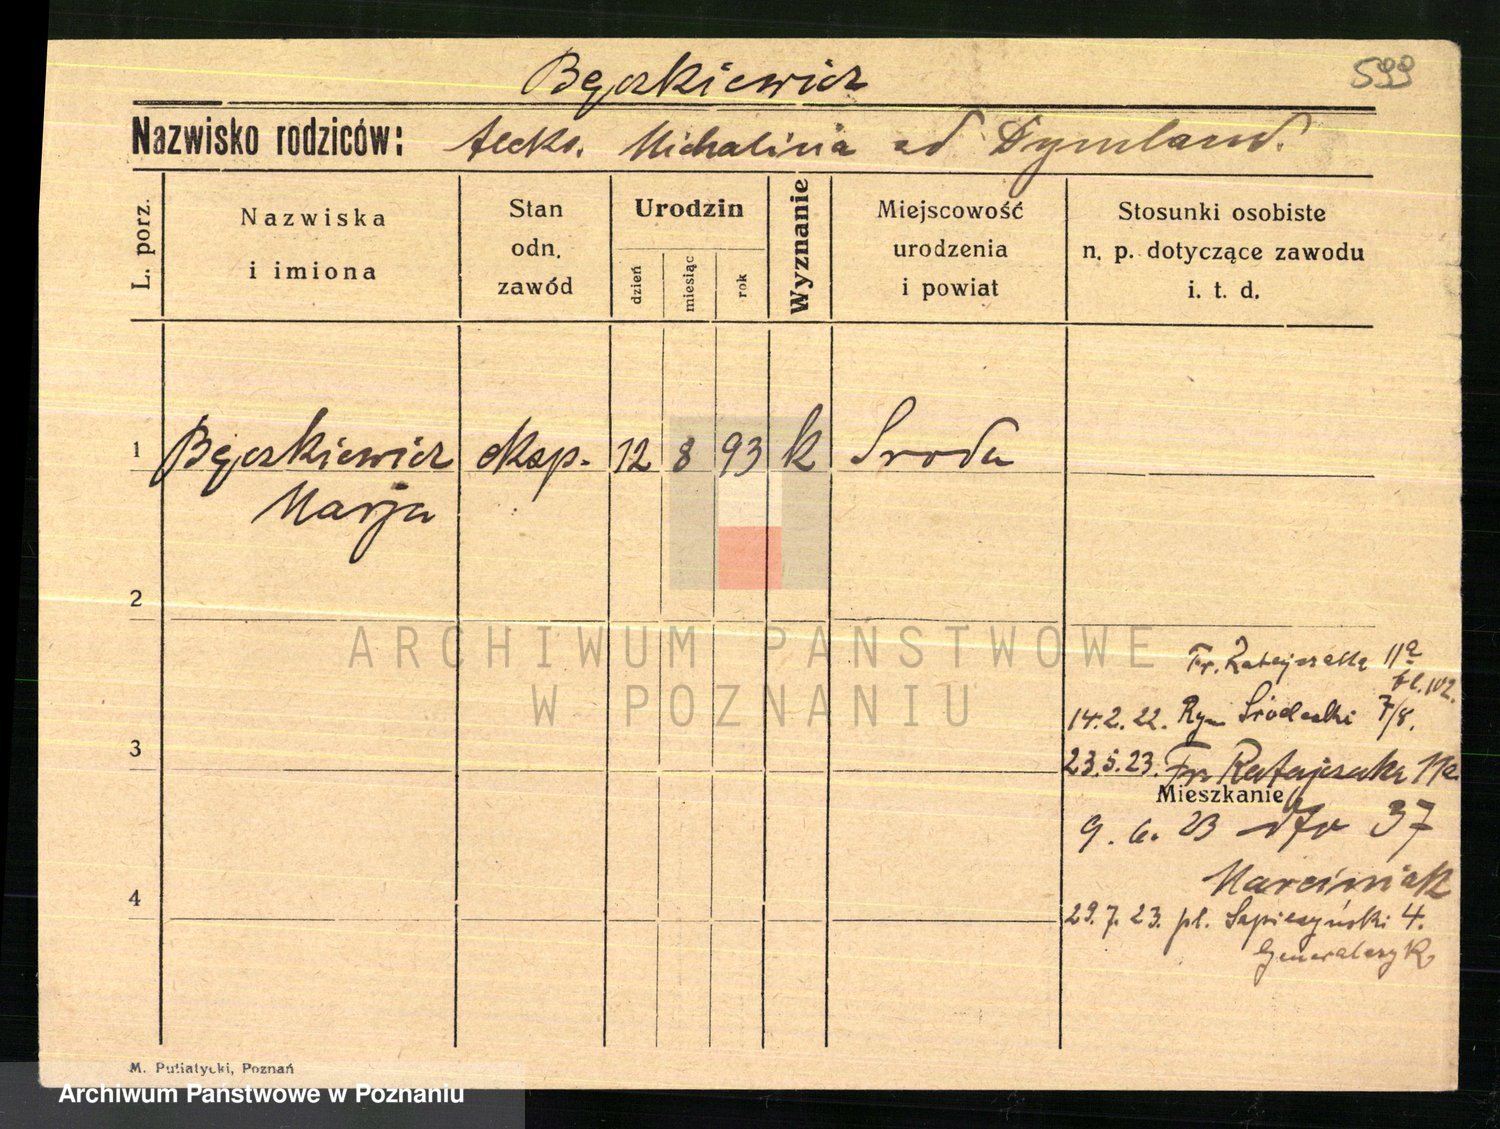 599
Bączkiewicz
Nazwisko rodziców: Aleks. Michalina od
L. porz.
Nazwiska
i imiona
Stan
odn.
zawód
Urodzin
dzień
miesiąc
rok
Wyznanie
Miejscowość
urodzenia
i powiat
Stosunki osobiste
n. p. dotyczące zawodu
i. t. d.
1 Bączkiewicz eksp. 12 8 93 k Sroda
Marja
2
ARCHIWUM PAŃSTWOWE
W POZNANIU
Fr. Ratajczaka 11a
14.2.22. Ryn Śródecki 7/8.
3
23.5.23. Fr Ratajczaka
Mieszkanie
9. 6. 23 dto 37
Marciniak
4
29.7.23. pl. Sapieżyński 4.
Generalczyk
M. Putiatycki, Poznań
Archiwum Państwowe w Poznaniu